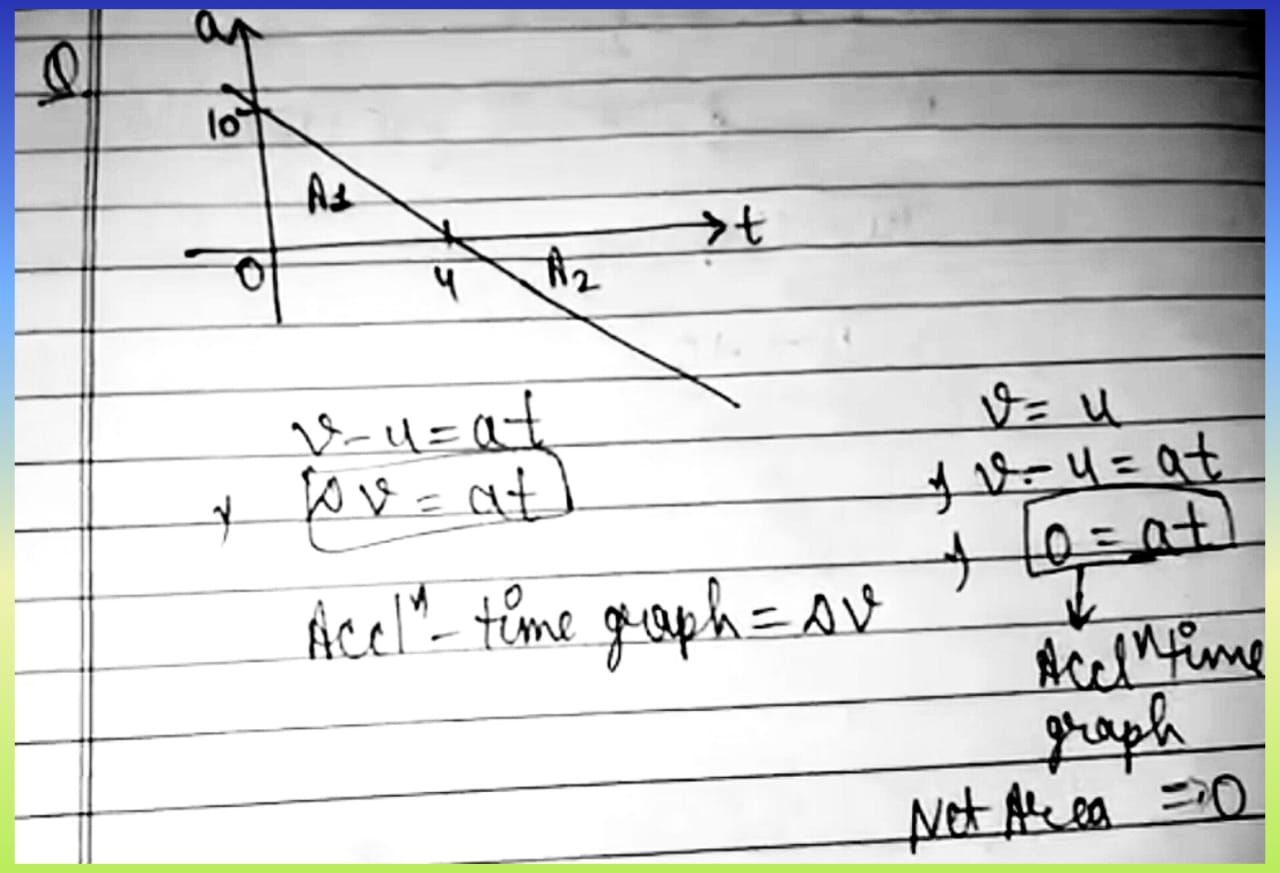 Q.
a
10
A1
t
0
4
A2
v-u=at
Δv = at
Acclⁿ-time graph = Δv
v= u
v-u=at
0 = at
Acclⁿtime
graph
Net Area => 0